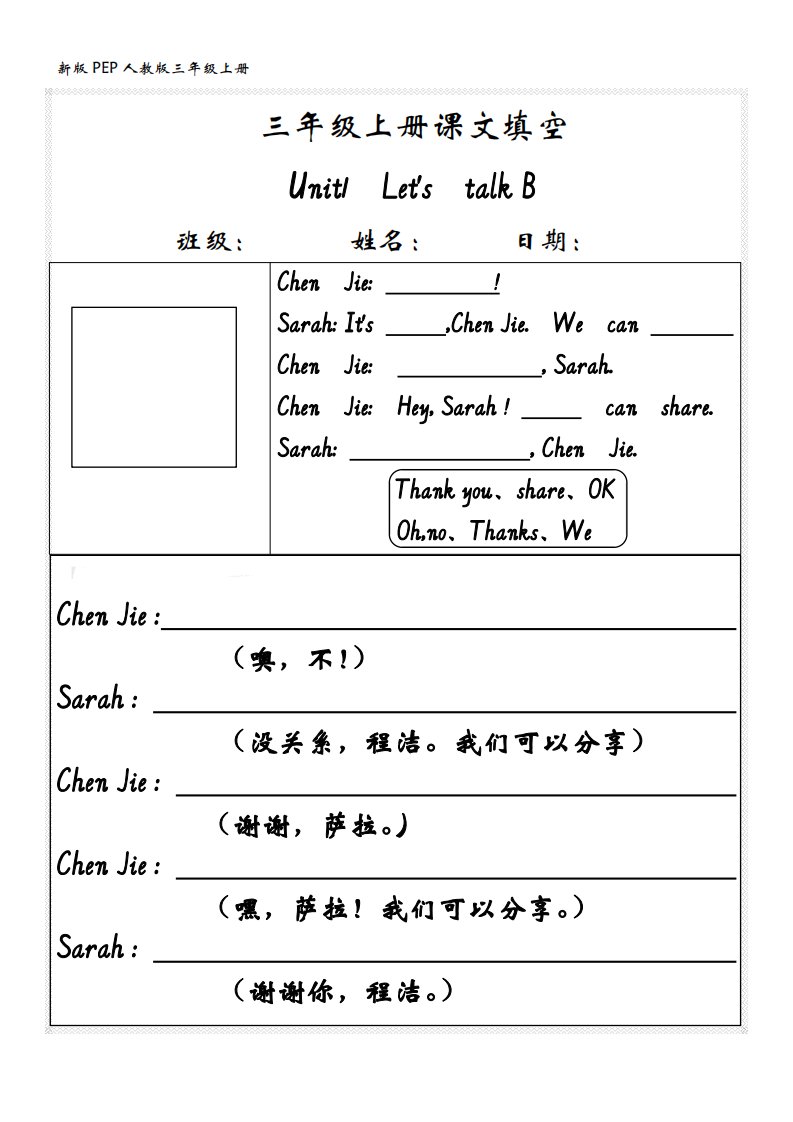 新版 PEP 人教版三年级上册
三年级上册课文填空
Unit1 Let's talk B
班级： 姓名： 日期：
Chen Jie: __________!
Sarah: It's _____,Chen Jie. We can _______
Chen Jie: ____________, Sarah.
Chen Jie: Hey, Sarah! _____ can share.
Sarah: _______________, Chen Jie.
Thank you、share、OK
Oh,no、Thanks、We
Chen Jie :
（噢，不!）
Sarah :
（没关系，程洁。我们可以分享）
Chen Jie :
（谢谢，萨拉。）
Chen Jie :
（嘿，萨拉！我们可以分享。）
Sarah :
（谢谢你，程洁。）